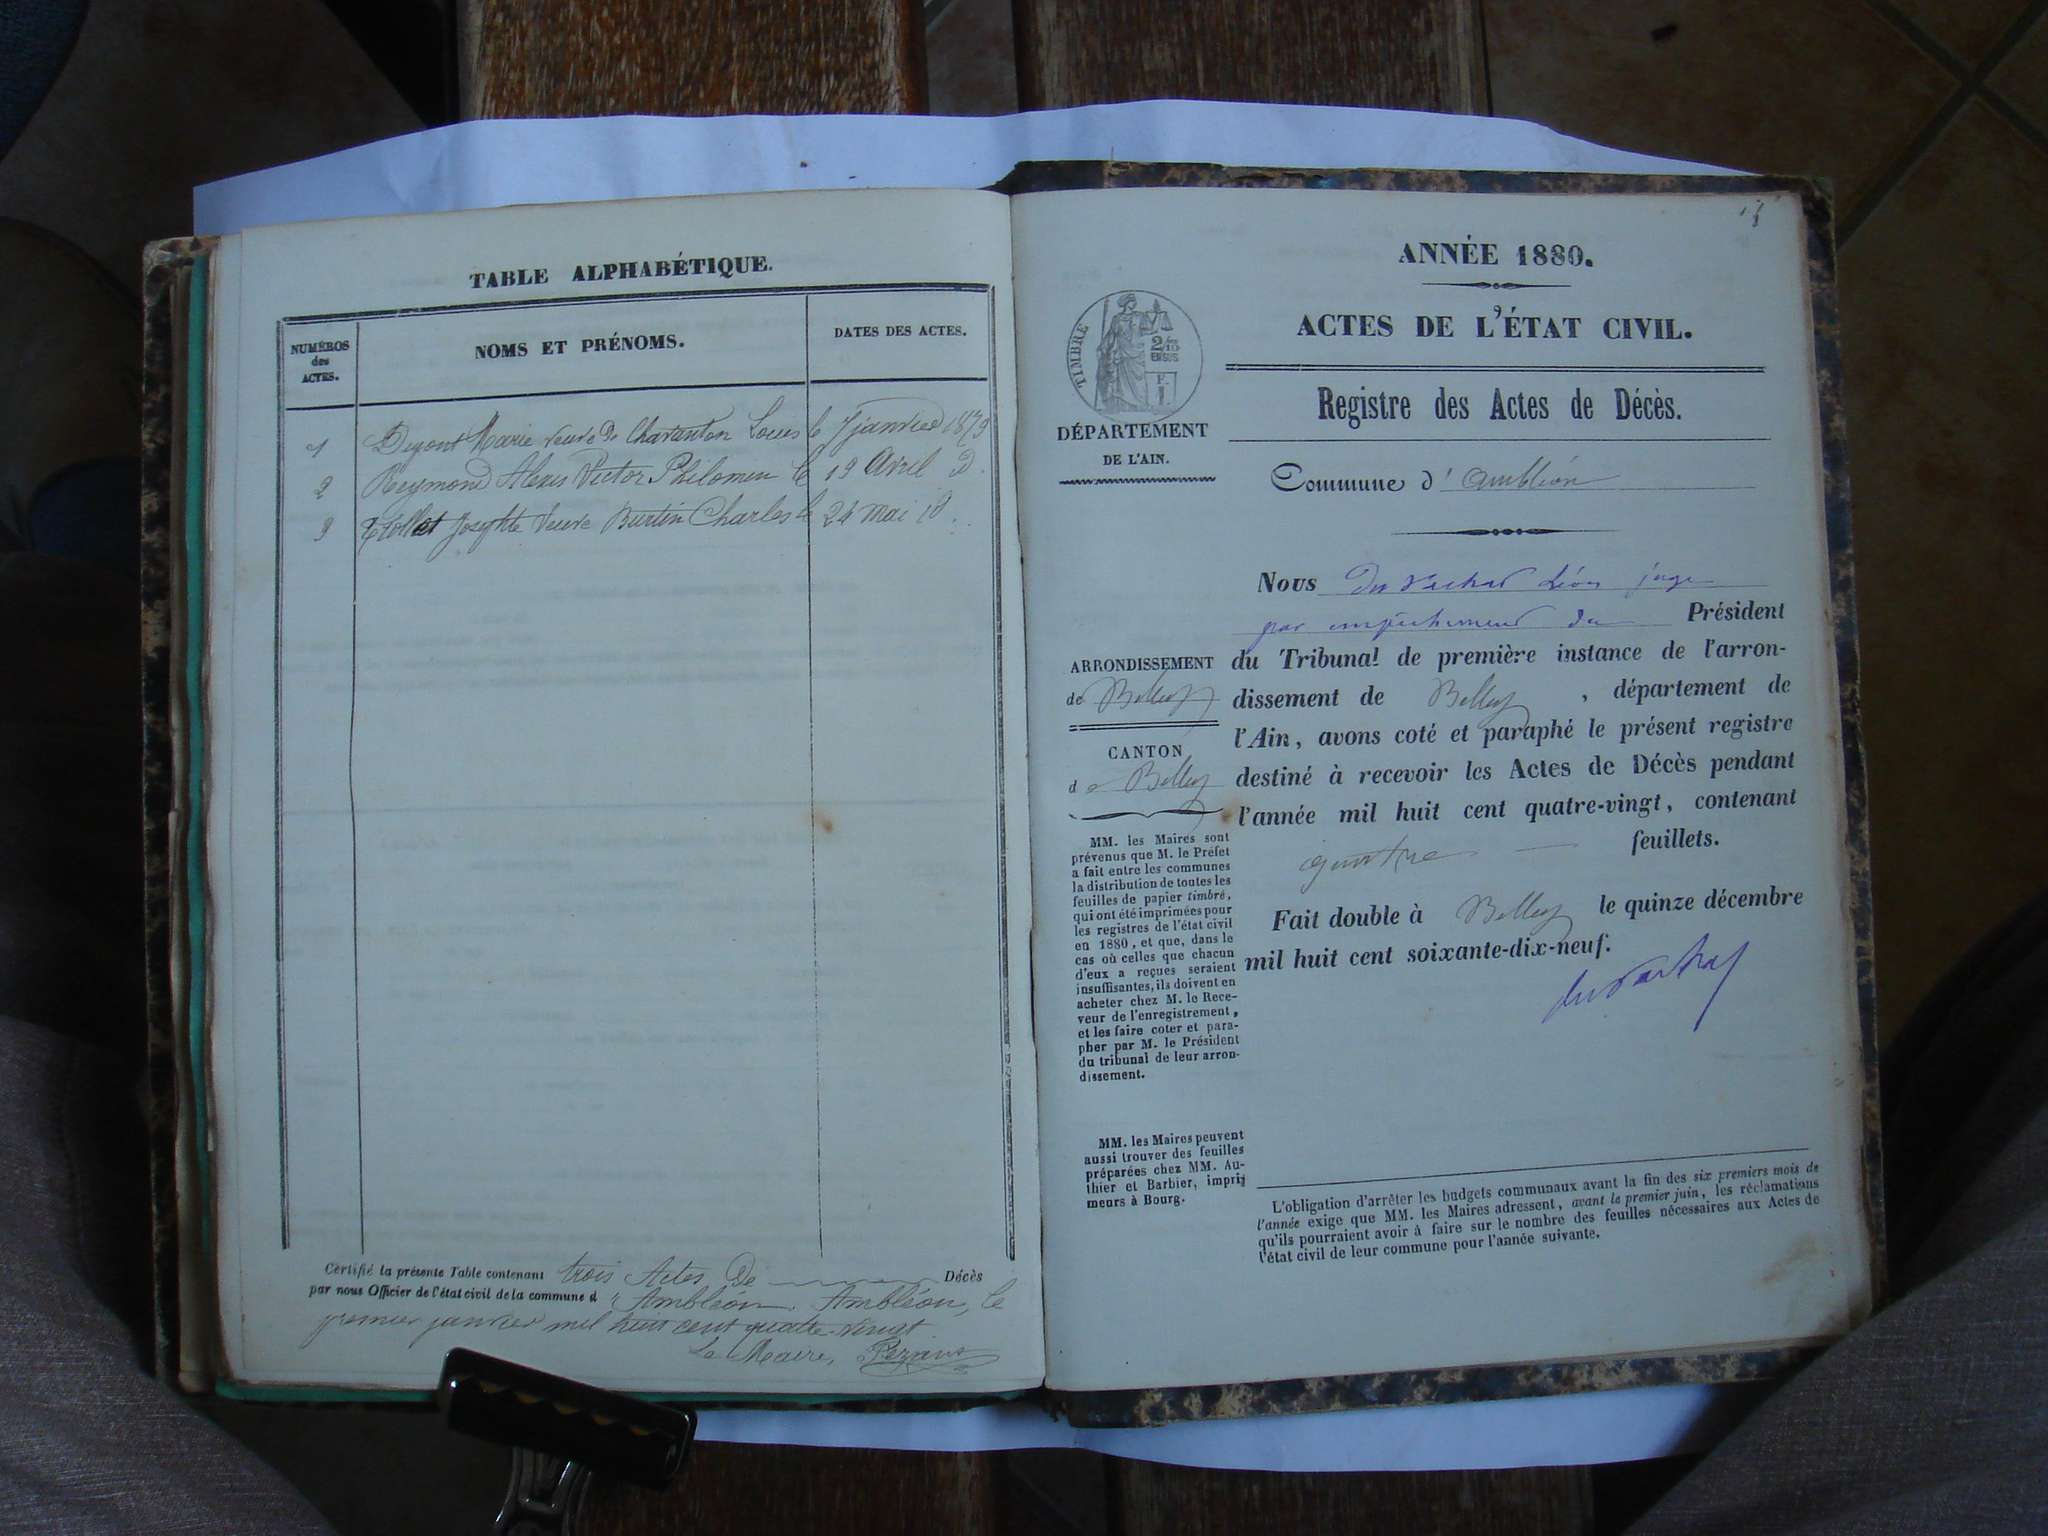 TABLE ALPHABÉTIQUE.
NUMÉROS
des
ACTES.
NOMS ET PRÉNOMS.
DATES DES ACTES.
1 Marie veuve De Charanton Louis le 7 janvier 1879
2 Reymond Alexis Victor Philomen le 19 Avril D.
3 Josephte Veuve Burtin Charles le 24 mai id.
Certifié la présente Table contenant trois Actes De Décès
par nous Officier de l'état civil de la commune d'Ambléon. Ambléon, le
premier janvier mil huit cent quatre-vingt
Le Maire,
ANNÉE 1880.
ACTES DE L'ÉTAT CIVIL.
Registre des Actes de Décès.
Commune d'Ambléon
TIMBRE
2/10
EN SUS
F.
1
DÉPARTEMENT
DE L'AIN.
ARRONDISSEMENT
de Belley
CANTON
de Belley
MM. les Maires sont
prévenus que M. le Préfet
a fait entre les communes
la distribution de toutes les
feuilles de papier timbré,
qui ont été imprimées pour
les registres de l'état civil
en 1880, et que, dans le
cas où celles que chacun
d'eux a reçues seraient
insuffisantes, ils doivent en
acheter chez M. le Rece-
veur de l'enregistrement,
et les faire coter et para-
pher par M. le Président
du tribunal de leur arron-
dissement.
MM. les Maires peuvent
aussi trouver des feuilles
préparées chez MM. Au-
thier et Barbier, impri-
meurs à Bourg.
Nous Léon juge
par empêchement du Président
du Tribunal de première instance de l'arron-
dissement de Belley, département de
l'Ain, avons coté et paraphé le présent registre
destiné à recevoir les Actes de Décès pendant
l'année mil huit cent quatre-vingt, contenant
quatre feuillets.
Fait double à Belley le quinze décembre
mil huit cent soixante-dix-neuf.
L'obligation d'arrêter les budgets communaux avant la fin des six premiers mois de
l'année exige que MM. les Maires adressent, avant le premier juin, les réclamations
qu'ils pourraient avoir à faire sur le nombre des feuilles nécessaires aux Actes de
l'état civil de leur commune pour l'année suivante.